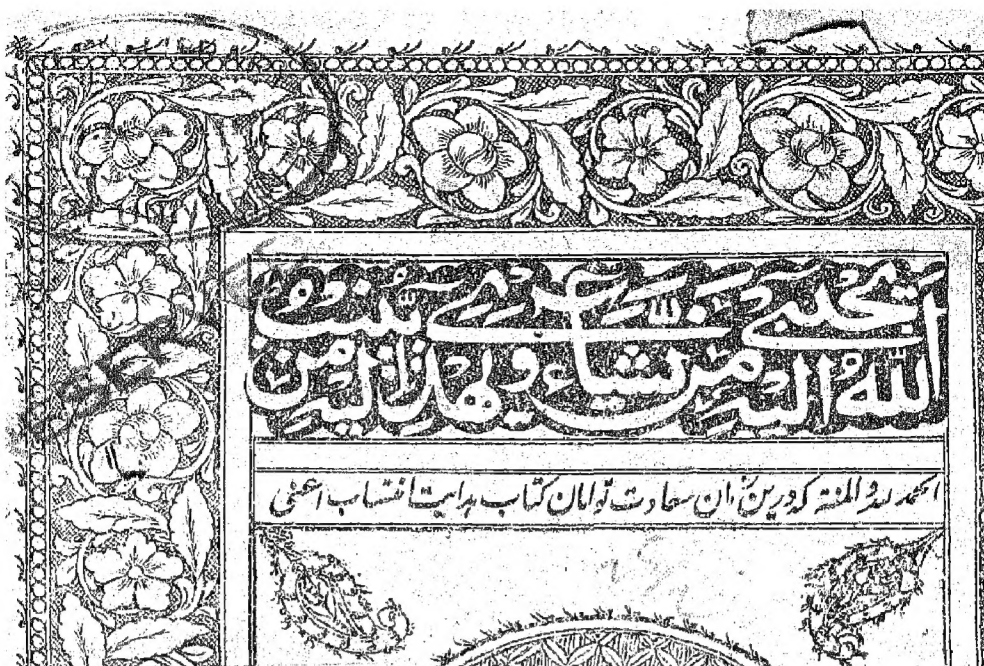 الله يجتبي اليه من يشاء ويهدي اليه من ينيب
الحمد لله والمنه که درین زمان سعادت توامان کتاب هدایت انتساب اعنی